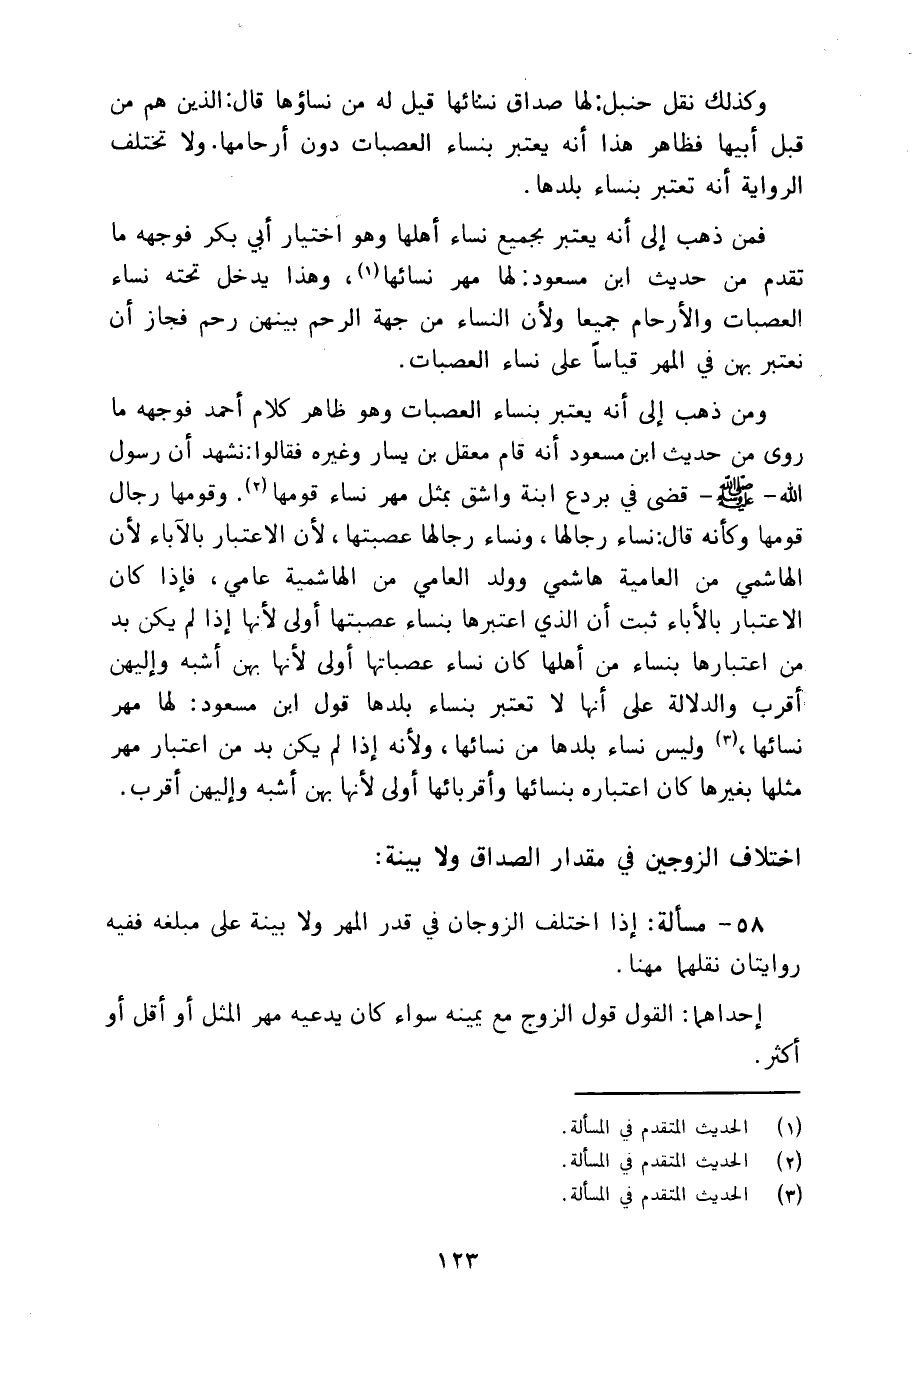 وكذلك نقل حنبل: لها صداق نسائها قيل له من نساؤها قال: الذين هم من
قبل أبيها فظاهر هذا أنه يعتبر بنساء العصبات دون أرحامها. ولا تختلف
الرواية أنه تعتبر بنساء بلدها.
فمن ذهب إلى أنه يعتبر بجميع نساء أهلها وهو اختيار أبي بكر فوجهه ما
تقدم من حديث ابن مسعود: لها مهر نسائها(١)، وهذا يدخل تحته نساء
العصبات والأرحام جميعا ولأن النساء من جهة الرحم بينهن رحم فجاز أن
نعتبر بهن في المهر قياساً على نساء العصبات.
ومن ذهب إلى أنه يعتبر بنساء العصبات وهو ظاهر كلام أحمد فوجهه ما
روى من حديث ابن مسعود أنه قام معقل بن يسار وغيره فقالوا: نشهد أن رسول
الله - ﷺ - قضى في بردع ابنة واشق بمثل مهر نساء قومها(٢). وقومها رجال
قومها وكأنه قال: نساء رجالها، ونساء رجالها عصبتها، لأن الاعتبار بالآباء لأن
الهاشمي من العامية هاشمي وولد العامي من الهاشمية عامي، فإذا كان
الاعتبار بالأباء ثبت أن الذي اعتبرها بنساء عصبتها أولى لأنها إذا لم يكن بد
من اعتبارها بنساء من أهلها كان نساء عصباتها أولى لأنها بهن أشبه وإليهن
أقرب والدلالة على أنها لا تعتبر بنساء بلدها قول ابن مسعود: لها مهر
نسائها،(٣) وليس نساء بلدها من نسائها، ولأنه إذا لم يكن بد من اعتبار مهر
مثلها بغيرها كان اعتباره بنسائها وأقربائها أولى لأنها بهن أشبه وإليهن أقرب.
اختلاف الزوجين في مقدار الصداق ولا بينة:
٥٨ - مسألة: إذا اختلف الزوجان في قدر المهر ولا بينة على مبلغه ففيه
روايتان نقلهما مهنا.
إحداهما: القول قول الزوج مع يمينه سواء كان يدعيه مهر المثل أو أقل أو
أكثر.
(١) الحديث المتقدم في المسألة.
(٢) الحديث المتقدم في المسألة.
(٣) الحديث المتقدم في المسألة.
١٢٣